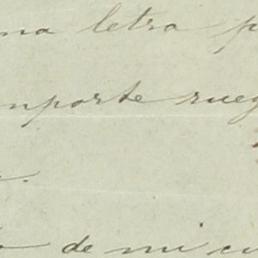 una letra p
importe rueg
de mi cu